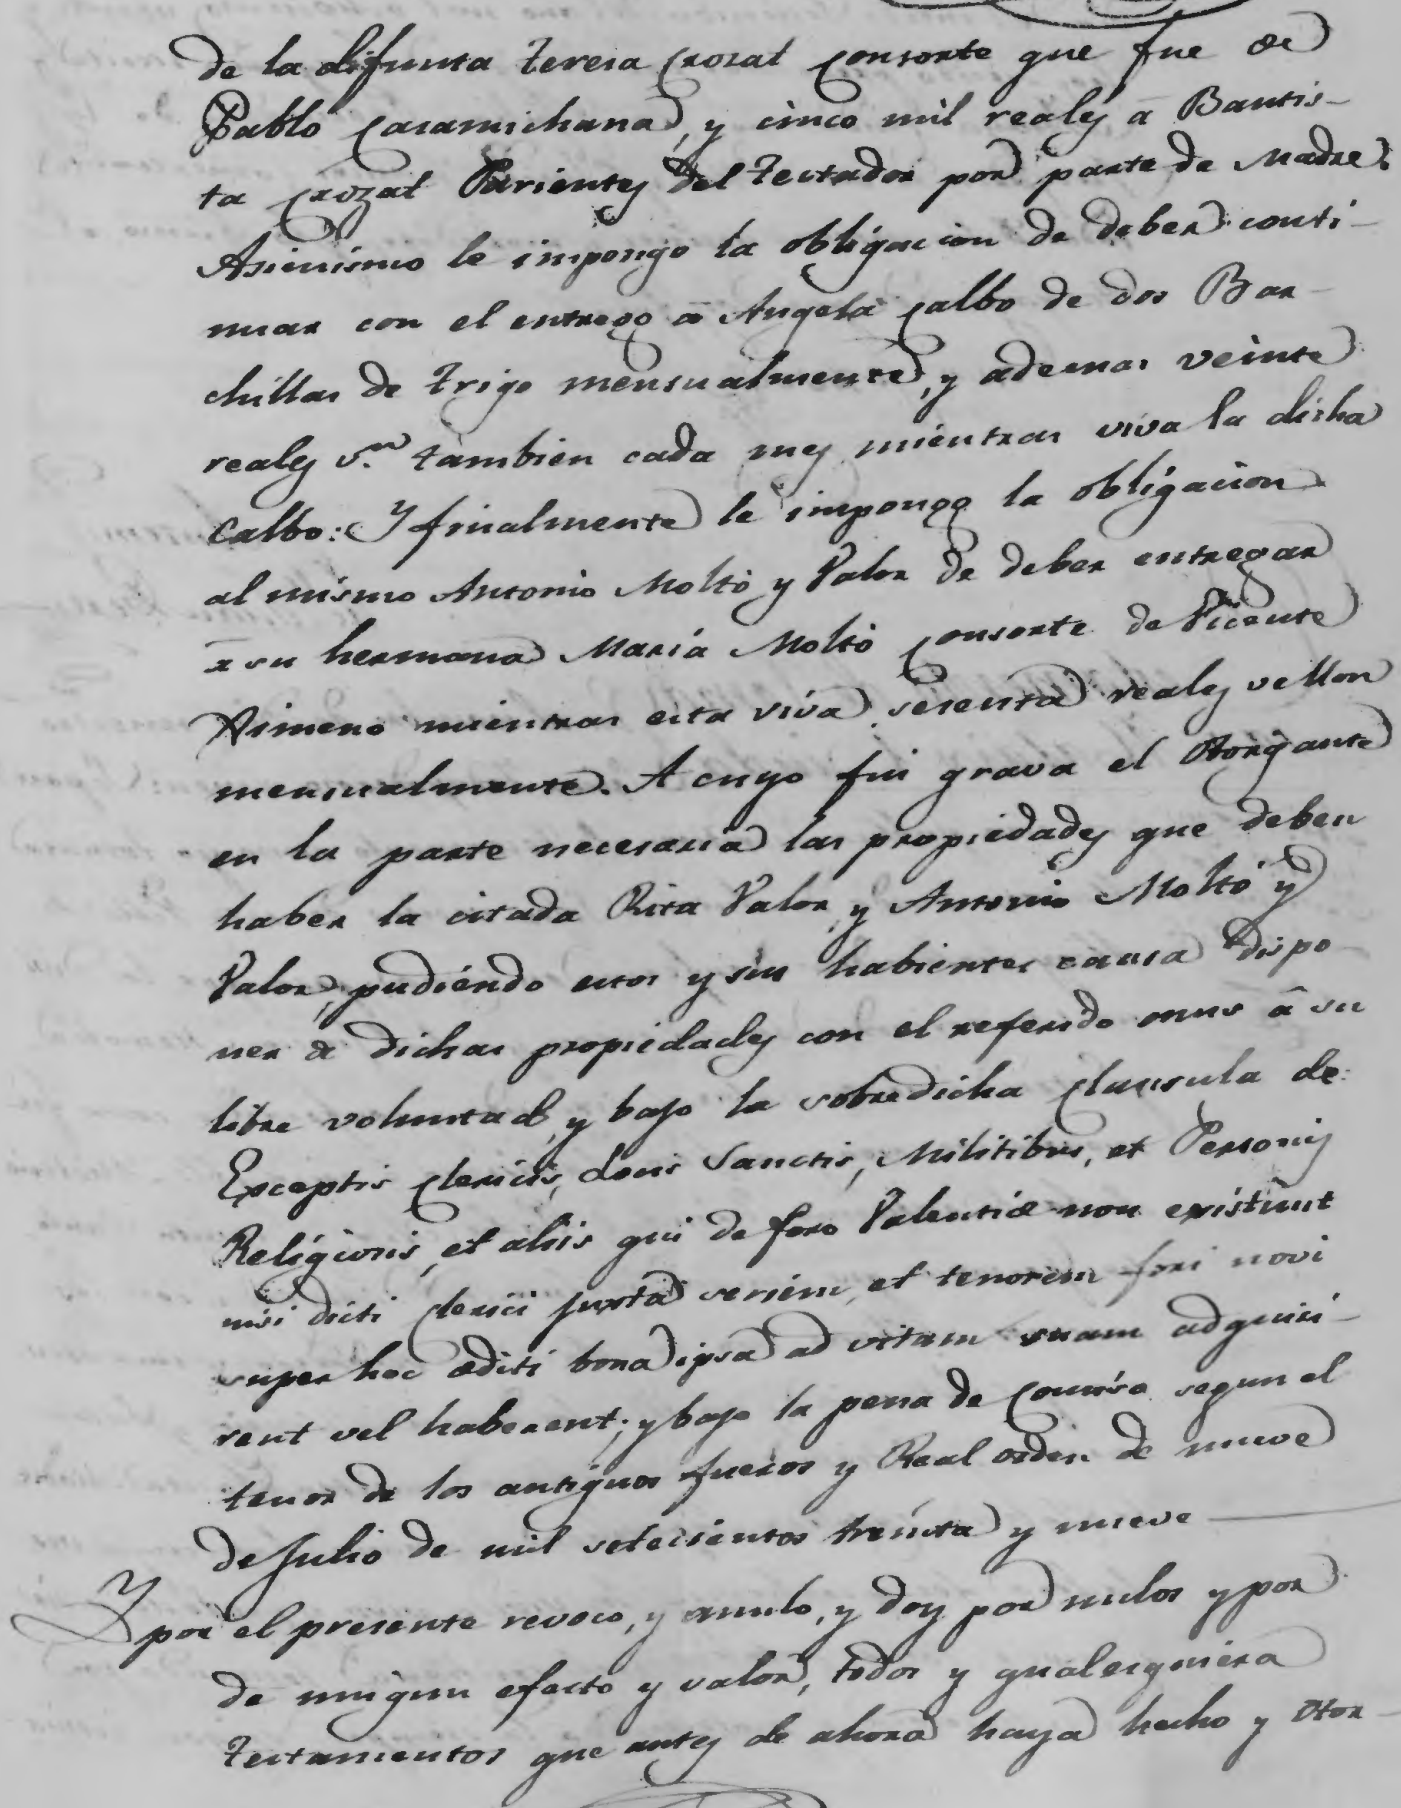 de la difunta Teresa Crozat consorte que fue de
Pablo Casamichana, y cinco mil reales á Bautis-
ta Crozat Parientes del Testador por parte de Madre.
Asimismo le impongo la obligacion de deber conti-
nuar con el entrego á Angela Calbo de dos Bar-
chillas de trigo mensualmente, y ademas veinte
reales v.n tambien cada mes mientras viva la dicha
Calbo: Y finalmente le impongo la obligacion
al mismo Antonio Moltó y Valor de deber entregar
á su hermana María Moltó consorte de Vicente
Ximeno mientras esta viva sesenta reales vellon
mensualmente. A cuyo fin grava el Otorgante
en la parte necesaria las propiedades que deben
haber la citada Rita Valor, y Antonio Moltó y
Valor, pudiéndo estos y sus habientes causa dispo-
ner de dichas propiedades con el referido onus á su
libre voluntad, y bajo la sobredicha clausula de:
Exceptis clericis, locis Sanctis, Militibus, et Personis
Religiosis, et aliis qui de foro Valentiæ non existunt
nisi dicti clerici juxta seriem, et tenorem fori novi
super hoc editi bona ipsa ad vitam suam adquiri-
rent vel haberent; y bajo la pena de comiso segun el
tenor de los antiguos fueros y Real orden de nueve
de Julio de mil setecientos treinta y nueve
Y por el presente revoco, y anulo, y doy por nulos y por
de ningun efecto y valor, todos y qualesquiera
testamentos que antes de ahora haya hecho y otor-